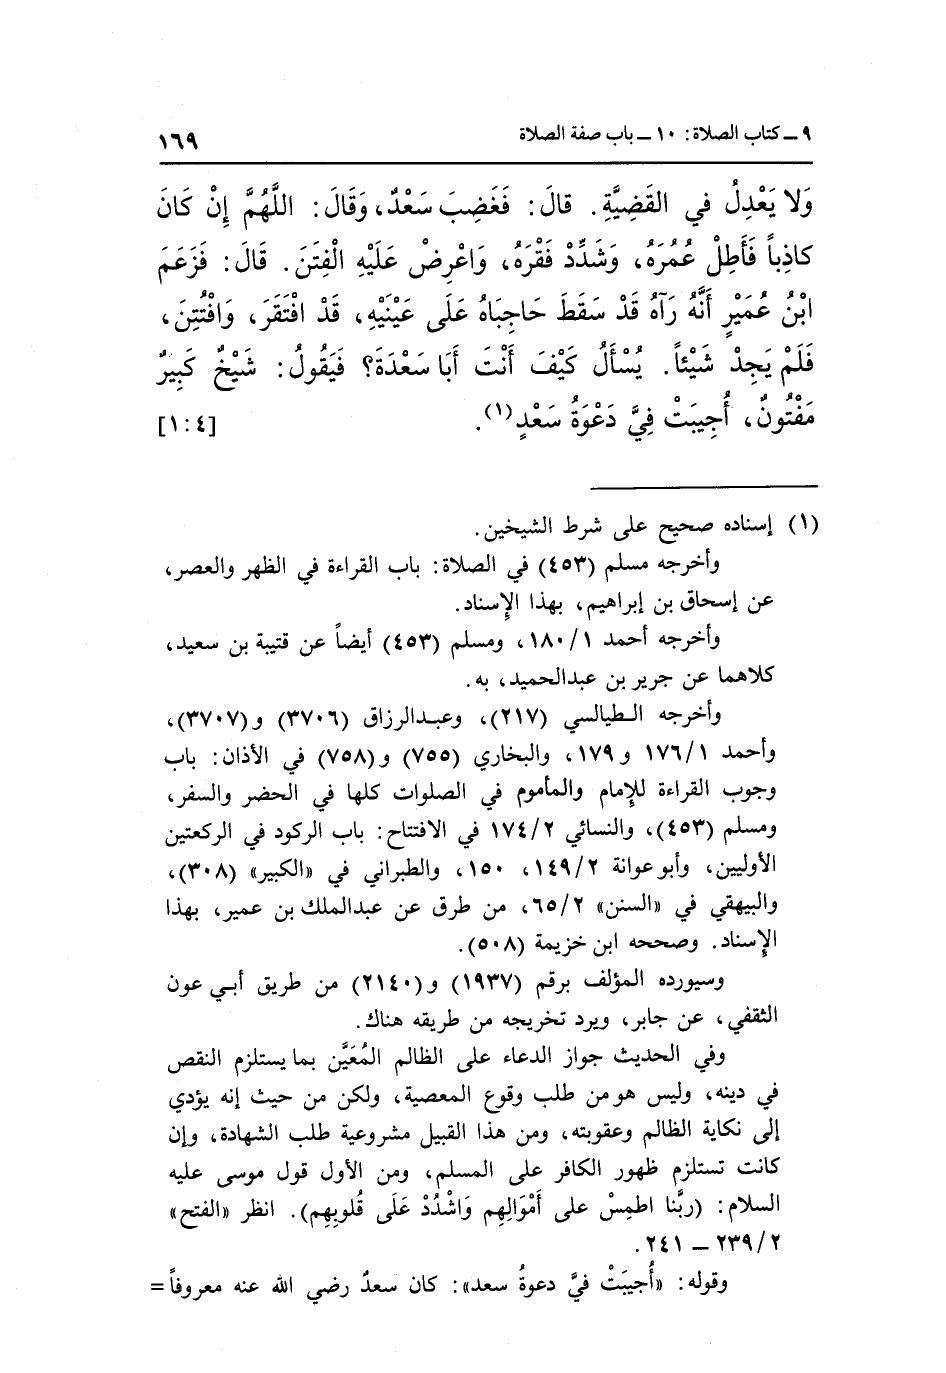 ٩ ـ كتاب الصلاة: ١٠ ـ باب صفة الصلاة ١٦٩
وَلا يَعْدِلُ في القَضِيَّةِ. قالَ: فَغَضِبَ سَعْدٌ، وَقَالَ: اللَّهُمَّ إِنْ كَانَ
كاذِباً فَأَطِلْ عُمُرَهُ، وَشَدِّدْ فَقْرَهُ، وَاعْرِضْ عَلَيْهِ الْفِتَنَ. قَالَ: فَزَعَمَ
ابْنُ عُمَيْرٍ أَنَّهُ رَآهُ قَدْ سَقَطَ حَاجِبَاهُ عَلَى عَيْنَيْهِ، قَدْ افْتَقَرَ، وَافْتُتِنَ،
فَلَمْ يَجِدْ شَيْئاً. يُسْأَلُ كَيْفَ أَنْتَ أَبَا سَعْدَةَ؟ فَيَقُولُ: شَيْخٌ كَبِيرٌ
مَفْتُونٌ، أُجِيبَتْ فِيَّ دَعْوَةُ سَعْدٍ(١). [١:٤]
(١) إسناده صحيح على شرط الشيخين.
وأخرجه مسلم (٤٥٣) في الصلاة: باب القراءة في الظهر والعصر،
عن إسحاق بن إبراهيم، بهذا الإسناد.
وأخرجه أحمد ١/١٨٠، ومسلم (٤٥٣) أيضاً عن قتيبة بن سعيد،
كلاهما عن جرير بن عبدالحميد، به.
وأخرجه الطيالسي (٢١٧)، وعبدالرزاق (٣٧٠٦) و(٣٧٠٧)،
وأحمد ١/١٧٦ و١٧٩، والبخاري (٧٥٥) و(٧٥٨) في الأذان: باب
وجوب القراءة للإمام والمأموم في الصلوات كلها في الحضر والسفر،
ومسلم (٤٥٣)، والنسائي ٢/١٧٤ في الافتتاح: باب الركود في الركعتين
الأوليين، وأبو عوانة ٢/١٤٩، ١٥٠، والطبراني في «الكبير» (٣٠٨)،
والبيهقي في «السنن» ٢/٦٥، من طرق عن عبدالملك بن عمير، بهذا
الإسناد. وصححه ابن خزيمة (٥٠٨).
وسيورده المؤلف برقم (١٩٣٧) و(٢١٤٠) من طريق أبي عون
الثقفي، عن جابر، ويرد تخريجه من طريقه هناك.
وفي الحديث جواز الدعاء على الظالم المُعَيَّن بما يستلزم النقص
في دينه، وليس هو من طلب وقوع المعصية، ولكن من حيث إنه يؤدي
إلى نكاية الظالم وعقوبته، ومن هذا القبيل مشروعية طلب الشهادة، وإن
كانت تستلزم ظهور الكافر على المسلم، ومن الأول قول موسى عليه
السلام: (ربَّنا اطمِسْ على أَمْوَالِهِم وَاشْدُدْ عَلَى قُلوبِهِم). انظر «الفتح»
٢/٢٣٩ ـ ٢٤١.
وقوله: «أُجيبَتْ فيَّ دعوةُ سعد»: كان سعدٌ رضي الله عنه معروفاً =